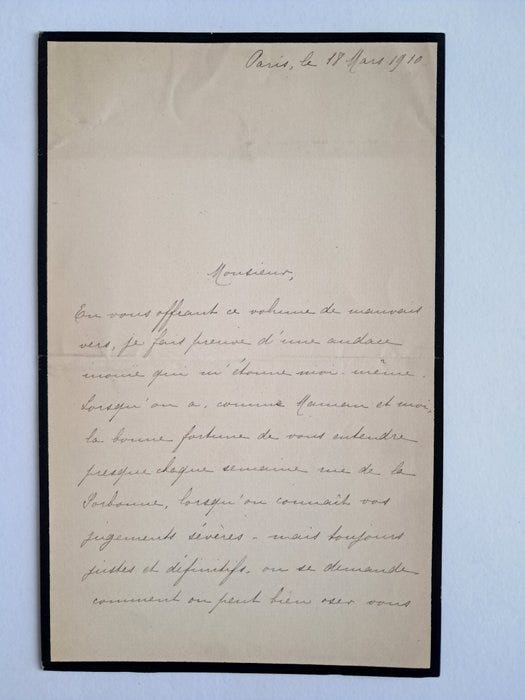 Paris, le 18 Mars 1910
Monsieur,
En vous offrant ce volume de mauvais
vers, je fais preuve d'une audace
inouïe qui m'étonne moi-même.
Lorsqu'on a, comme Maman et moi,
la bonne fortune de vous entendre
presque chaque semaine rue de la
Sorbonne, lorsqu'on connaît vos
jugements sévères - mais toujours
justes et définitifs, on se demande
comment on peut bien oser vous